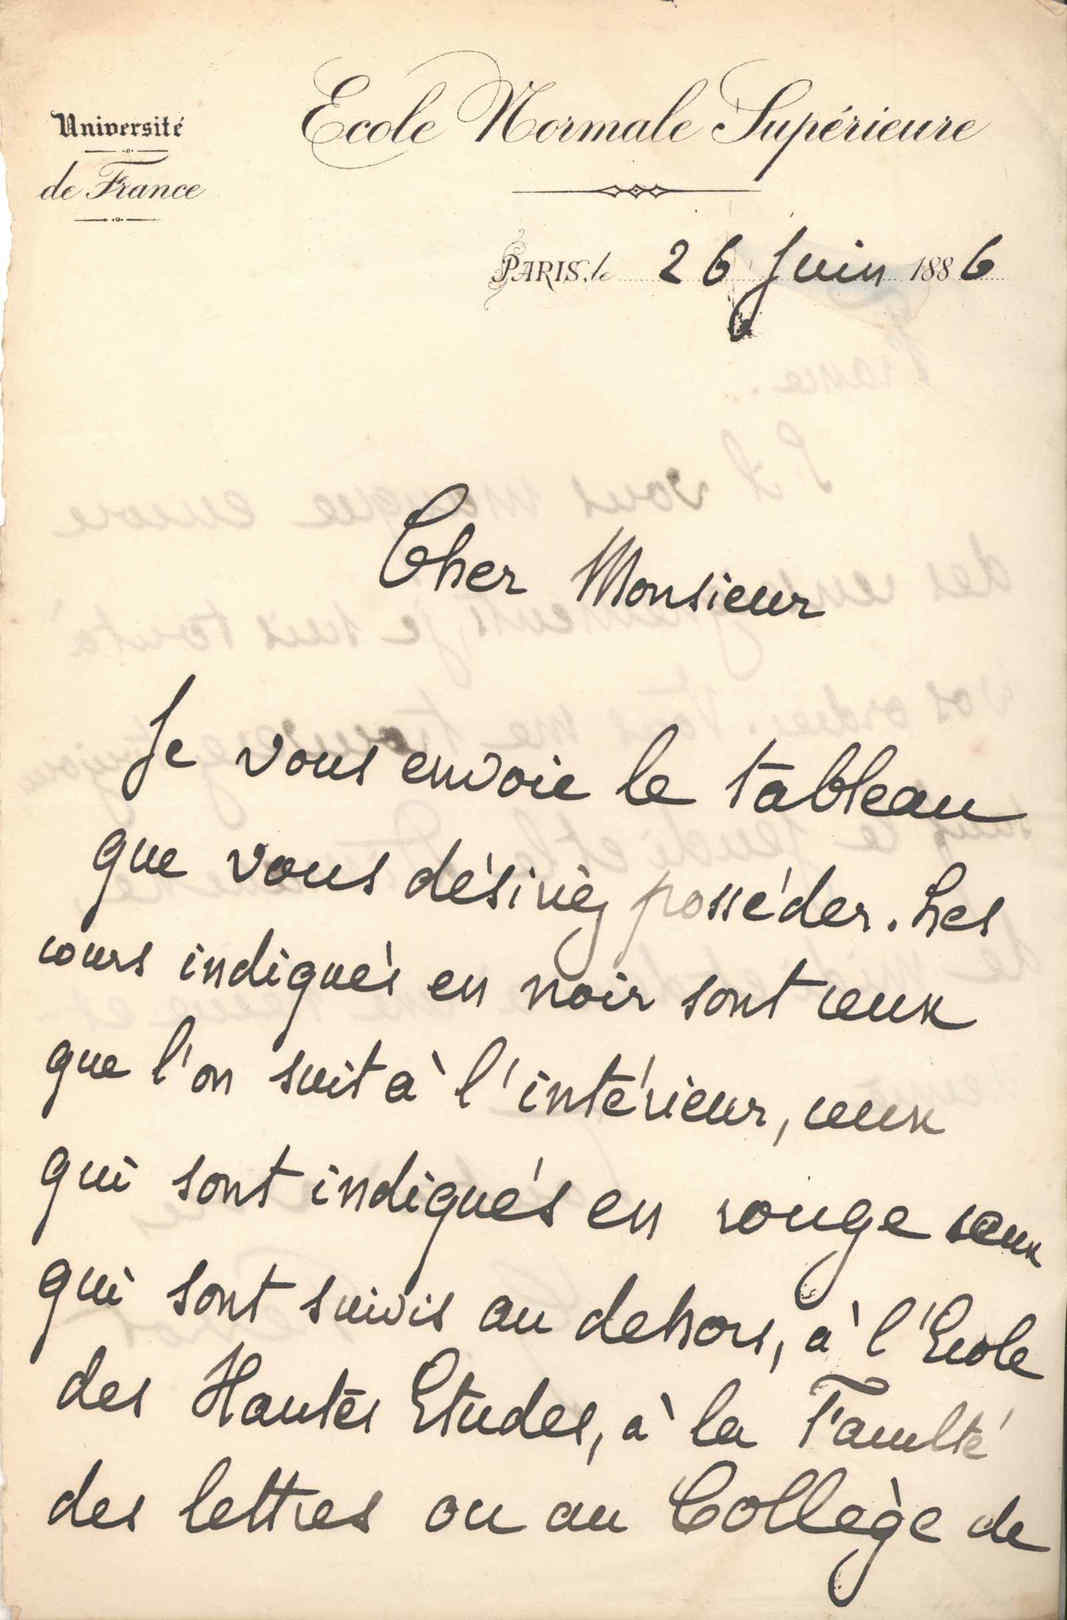 Université
de France
Ecole Normale Supérieure
PARIS, le 26 Juin 1886
Cher Monsieur
Je vous envoie le tableau
que vous désiriez posséder. Les
cours indiqués en noir sont ceux
que l'on suit à l'intérieur, ceux
qui sont indiqués en rouge ceux
qui sont suivis au dehors, à l'Ecole
des Hautes Etudes, à la Faculté
des lettres ou au Collège de